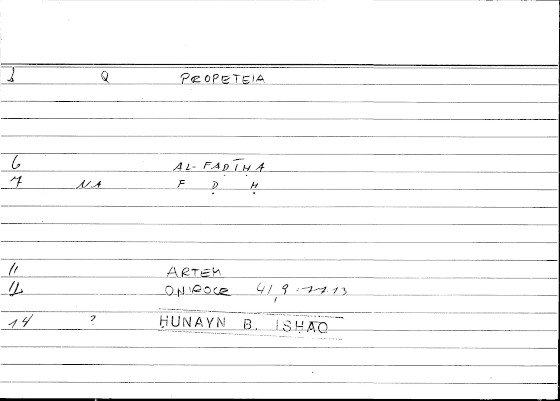 1 Q PROPETEIA
6 AL-FAḌĪḤA
7 NA F Ḍ Ḥ
11 ARTEM
12 ONIROCR 41,9
14 ? HUNAYN B. ISHAQ